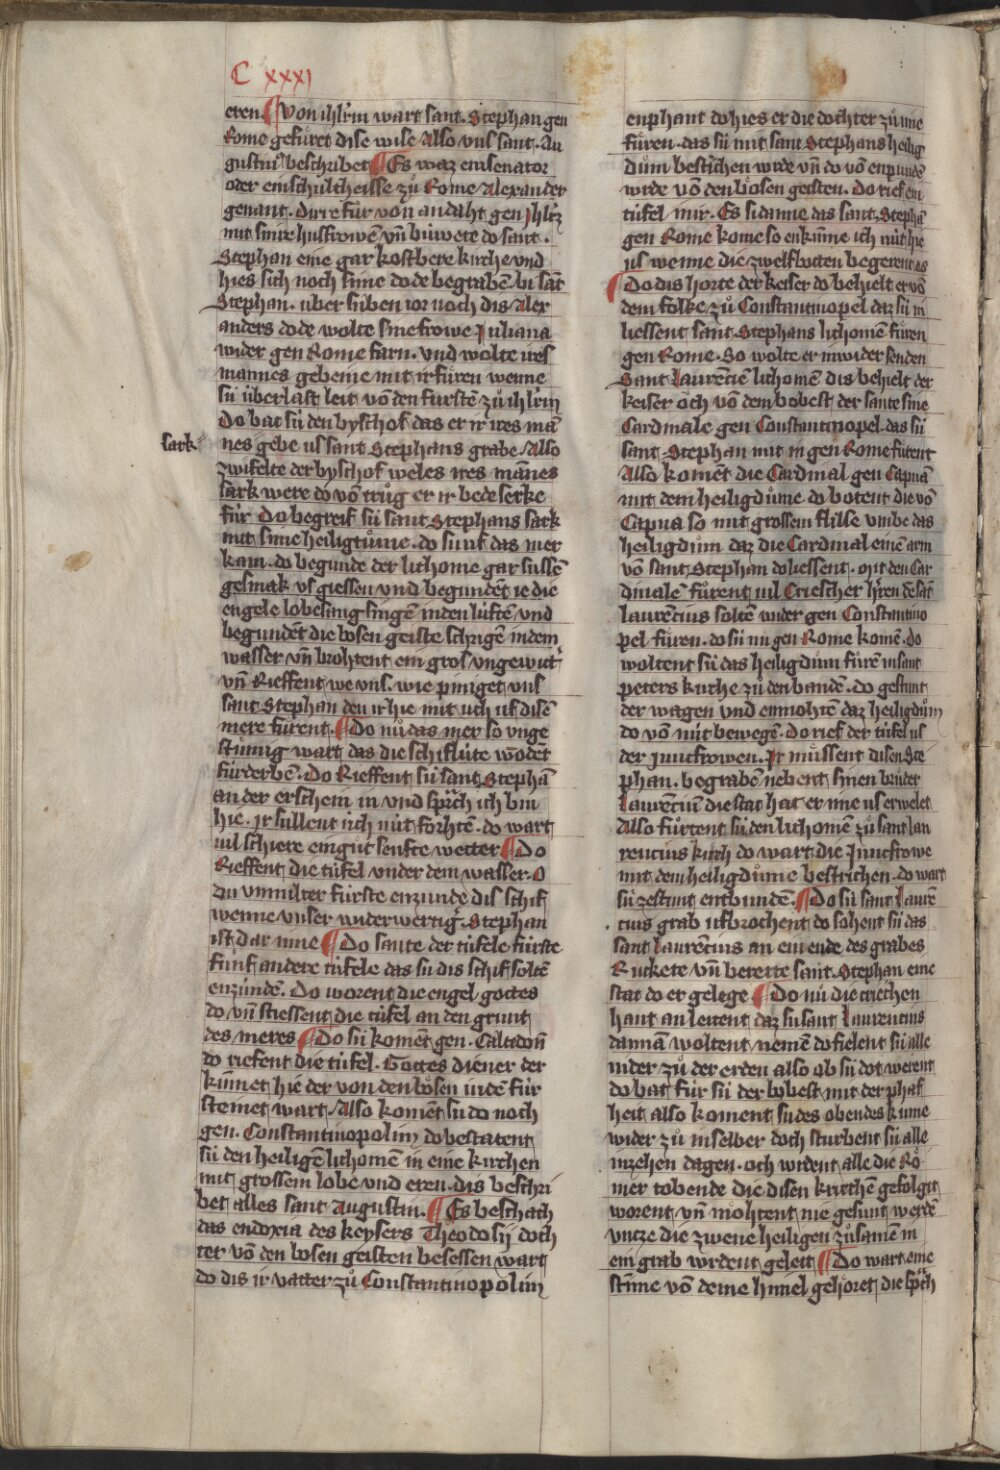 C xxxj
eren ¶ Von ihl'rm wart sant Stephan gen
Rome gefüret dise wise Also uns sant Au
gustin' beschribet ¶ Es waz ein senator
oder ein schultheisse zů Rome Alexander
genant. Dirre fůr von andaht gen ihl'rz
mit sinre husfrowē vn̄ buwete do sant.
Stephan eine gar kostbere kirche vnd
hies sich noch sime dode begrabē bi sāt
Stephan. über siben ior noch dis Alex
anders dode wolte sine frowe Juliana
wider gen Rome farn. vnd wolte ires
mannes gebeine mit ir fůren wenne
sü überlast leit vō den fürstē zů ihl'rm
Do bat sü den byschof das er ir ires mā
nes gebe us sant Stephans grabe Also
sark
zwifelte der byschof weles ires mānes
sark were do vō trůg er ir bede serke
für Do begreif sü sant Stephans sark
mit sime heiligtůme. do sü uf das mer
kam. do begunde der lichome gar süssē
gesmak vs giessen vnd begundēt ie die
engele lobesang singē in den lüftē vnd
begundēt die bosen geiste schrigē in dem
wasser vn̄ brohtent ein gros vngewit'
vn̄ Rieffent we vns. wie piniget vns
sant Stephan den ir hie mit üch uf disē
mere fürent. ¶ Do nů das mer so vnge
stümig wart das die schiflüte wōdēt
fürderbē. Do Rieffent sü sant Stephā
an der erschein in vnd sprach ich bin
hie. ir süllent üch nüt förhtē. do wart
vil schiere ein gůt senfte wetter ¶ Do
Rieffent die tüfel vnder dem wasser. O
du vnmilter fürste enzünde dis schif
wenne vnser widerwertig' Stephan
ist dar inne ¶ Do sante der tüfele fürste
fünf andere tüfele das sü dis schif soltē
enzündē. Do worent die engel gottes
do vn̄ stiessent die tüfel an den grunt
des meres ¶ Do sü komēt gen. Calcedoñ
do riefent die tüfel. Gottes diener der
kūmet hie der von den bösen iudē für
steinet wart Also komēt sü do noch
gen. Constantinopolim do bestatent
sü den heiligē lichomē in eine kirchen
mit grossem lobe vnd eren. dis beschri
bet alles sant Augustin. ¶ Es beschach
das eudoxia des keysers Theodosij doch
ter vō den bosen geisten besessen wart
do dis ir vatter zů Constantinopolim
enphant do hies er die dochter zů ime
fůren. das sü mit sant Stephans heilig
dům bestrichen wrde vn̄ do vō enpundē
wrde vō den bösen geisten. Do rief ein
tüfel in ir. Es si danne das sant Stephā
gen Rome kome so enkume ich nüt hie
us wenne die zwelfbotten begerent es
¶ Do dis horte der keiser do behielt er vō
dem folke zů Constantinopel daz sü in
liessent sant Stephans lichomē fůren
gen Rome. So wolte er in wider senden
Sant Laurēciē lichomē dis behielt der
keiser och vō dem bobest der sante sine
Cardinale gen Constantinopel. das sü
sant Stephan mit in gen Rome fůrent
Also komēt die Cardinal gen Capuā
mit dem heiligdůme. do botent die vō
Capua so mit grossem flisse vmbe das
heiligdům daz die Cardinal einē arm
vō sant Stephan do liessent. Mit den Car
dinalē fůrent vil Criescher h'ren die sāt
laurēcius soltē wider gen Constantino
pel fůren. do sü nu gen Rome komē. do
woltent sü das heiligdům fůrē in sant
peters kirche zů den bandē. do gestunt
der wagen vnd enmohtē daz heiligdům
do vō nüt bewegē. Do rief der tüfel us
der Juncfrowen. Jr müssent disen Ste
phan. begrabē nebent sinen brůder
Laurēciū die stat hat er ime us erwelet
Also fůrtent sü den lichomē zů sant lau
rencius kirch do wart die Juncfrowe
mit dem heiligdůme bestrichen. do wart
sü zestunt enbundē. ¶ Do sü sant laurē
cius grab ufbrochent do sohent sü das
sant laurēcius an ein ende des grabes
Ruckete vn̄ bereite sant. Stephan eine
stat do er gelege ¶ Do nu die criechen
hant an leitent daz sü sant laurencius
dannā woltent nemē do fielent sü alle
nider zů der erden also ob sü dot werent
do bat für sü der bobest mit der phaf
heit also koment sü des obendes kume
wider zů in selber doch sturbent sü alle
in zehen dagen. och wrdent alle die Rö
mer tobende die disen kriechē gefolgit
worent vn̄ möhtent nie gesunt werdē
vntze die zwene heiligen zůsamē in
ein grab wrdent geleit ¶ Do wart eine
stime vō deme himel gehöret die sprach